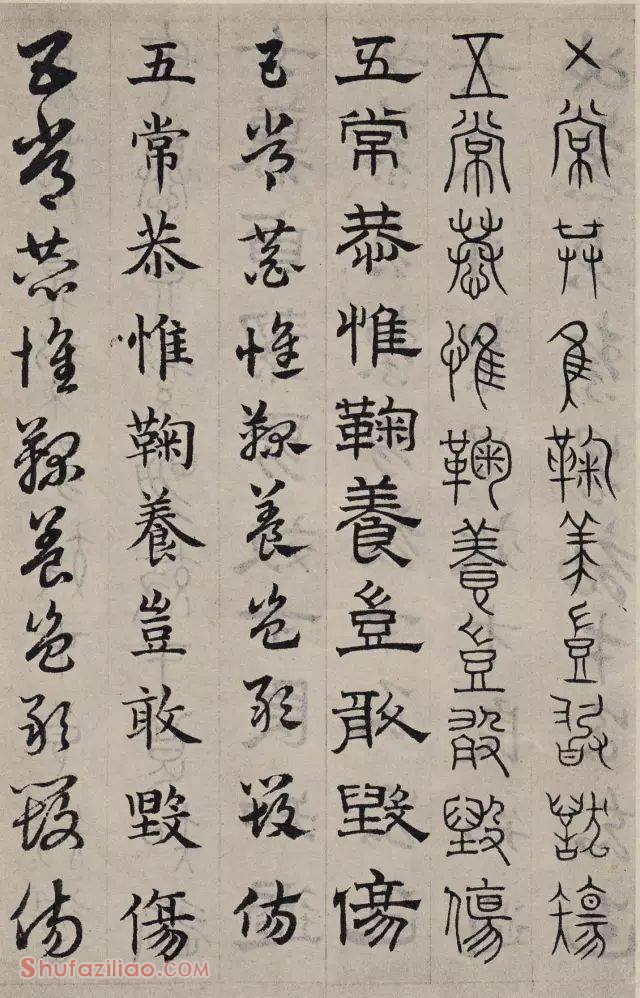 五常恭惟鞠養豈敢毀傷
五常恭惟鞠養豈敢毀傷
五常恭惟鞠養豈敢毀傷
五常恭惟鞠養豈敢毀傷
五常恭惟鞠養豈敢毀傷
五常恭惟鞠養豈敢毀傷
Shufaziliao.com